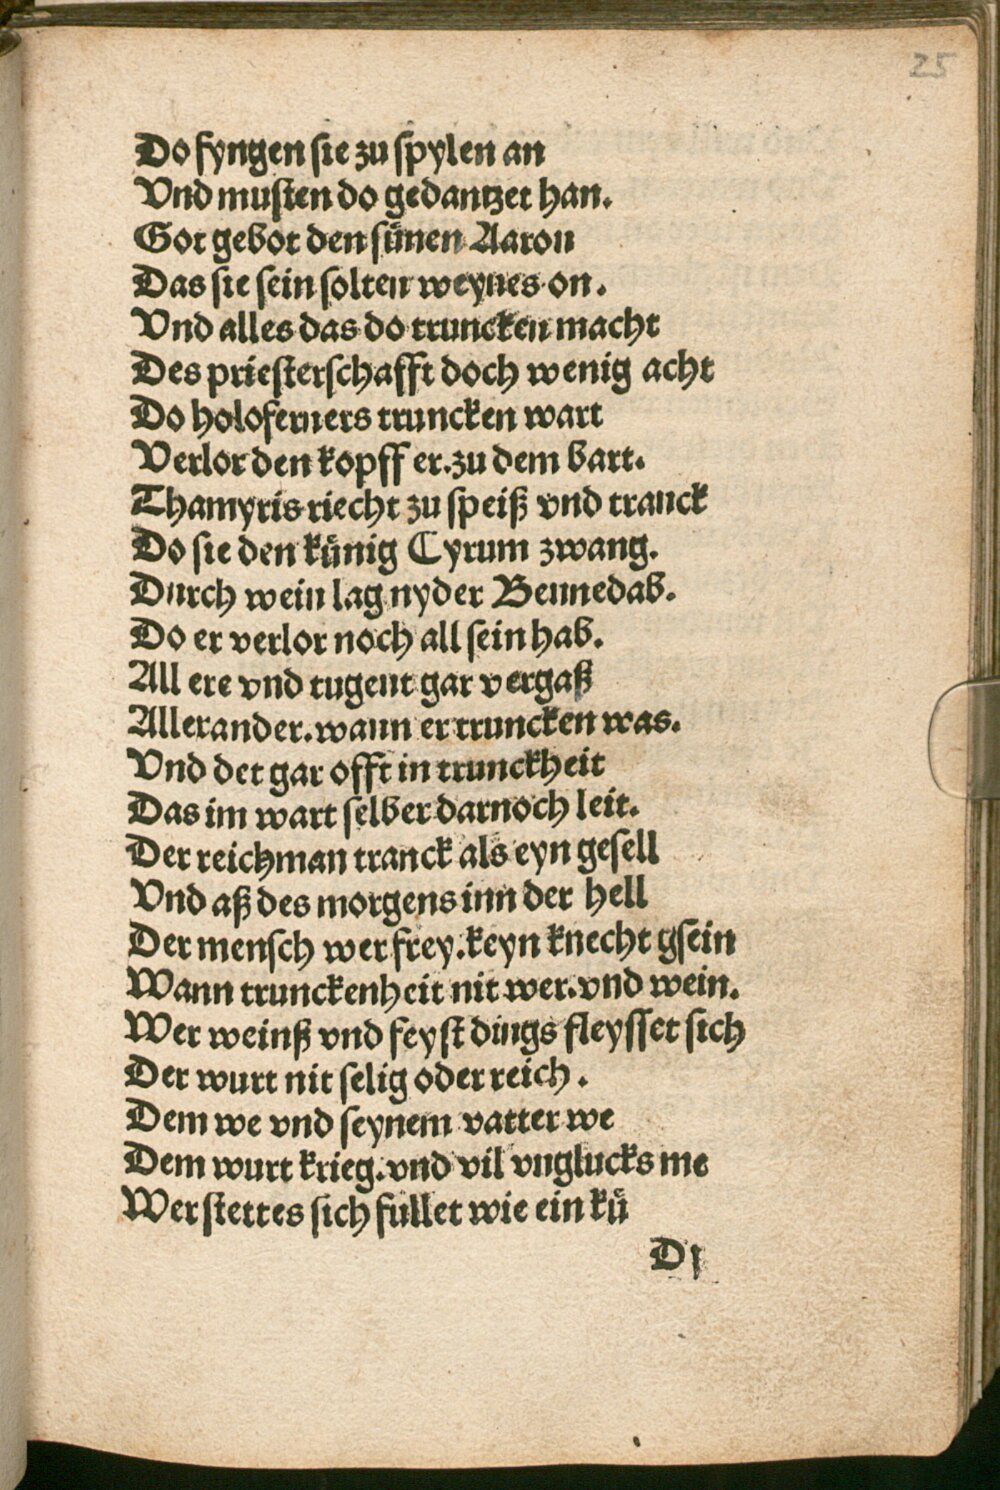 25
Do fyngen sie zu spylen an
Vnd musten do gedantzet han.
Got gebot den sünen Aaron
Das sie sein solten weynes on.
Vnd alles das do truncken macht
Des priesterschafft doch wenig acht
Do holoferners truncken wart
Verlor den kopff er.zu dem bart.
Thamyris riecht zu speiß vnd tranck
Do sie den künig Cyrum zwang.
Durch wein lag nyder Bennedab.
Do er verlor noch all sein hab.
All ere vnd tugent gar vergaß
Allexander.wann er truncken was.
Vnd det gar offt in trunckheit
Das im wart selber darnoch leit.
Der reichman tranck als eyn gesell
Vnd aß des morgens inn der hell
Der mensch wer frey.keyn knecht gsein
Wann trunckenheit nit wer.vnd wein.
Wer weinß vnd feyst dings fleysset sich
Der wurt nit selig oder reich.
Dem we vnd seynem vatter we
Dem wurt krieg.vnd vil vnglucks me
Wer stettes sich fullet wie ein kü
D j